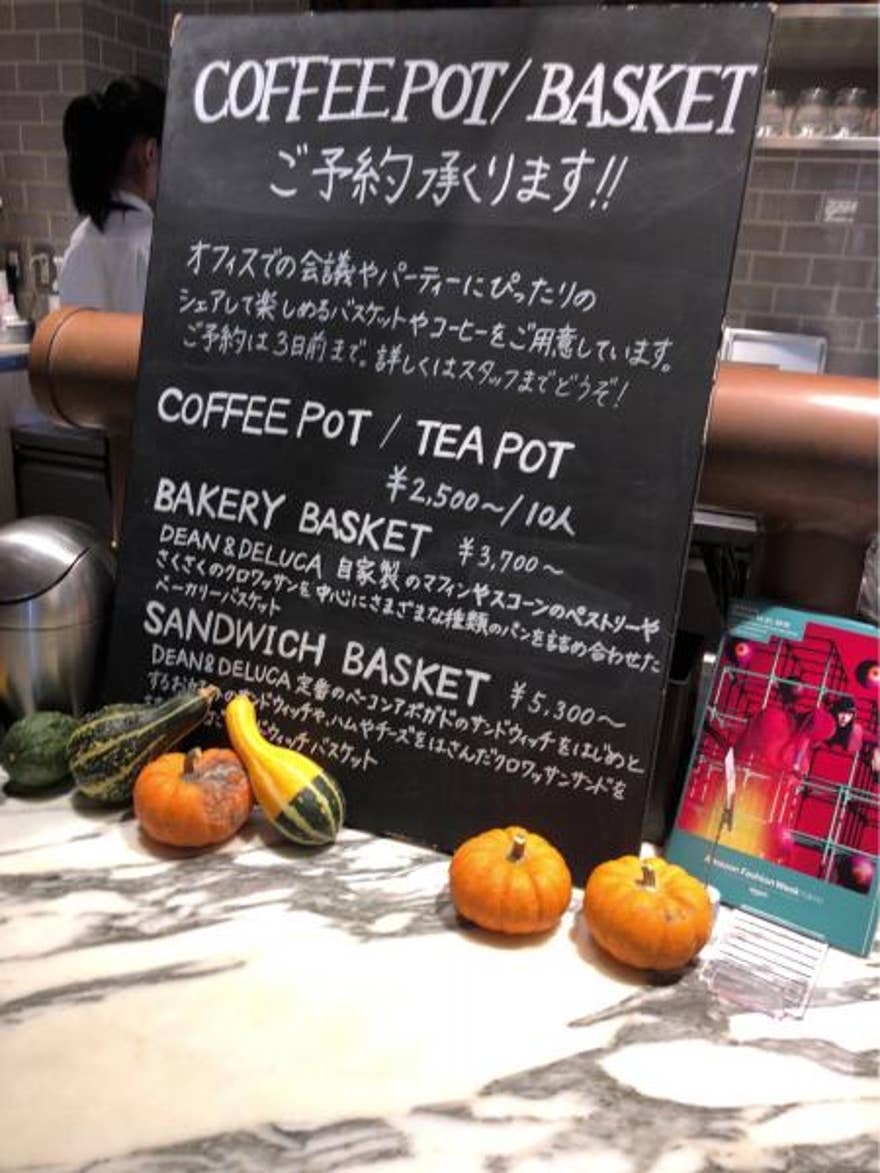 COFFEE POT/ BASKET
ご予約承くります!!
オフィスでの会議やパーティーにぴったりの
シェアして楽しめるバスケットやコーヒーをご用意しています。
ご予約は3日前まで。詳しくはスタッフまでどうぞ!
COFFEE POT / TEA POT
¥2,500~/10人
BAKERY BASKET ¥3,700~
DEAN&DELUCA 自家製のマフィンやスコーンのペストリーや
さくさくのクロワッサンを中心にさまざまな種類のパンを詰め合わせた
ベーカリーバスケット
SANDWICH BASKET ¥5,300~
DEAN&DELUCA 定番のベーコンアボガドのサンドウィッチをはじめと
するお のサンドウィッチや、ハムやチーズをはさんだクロワッサンサンドを
ウィッチバスケット
Amazon Fashion Week TOKYO